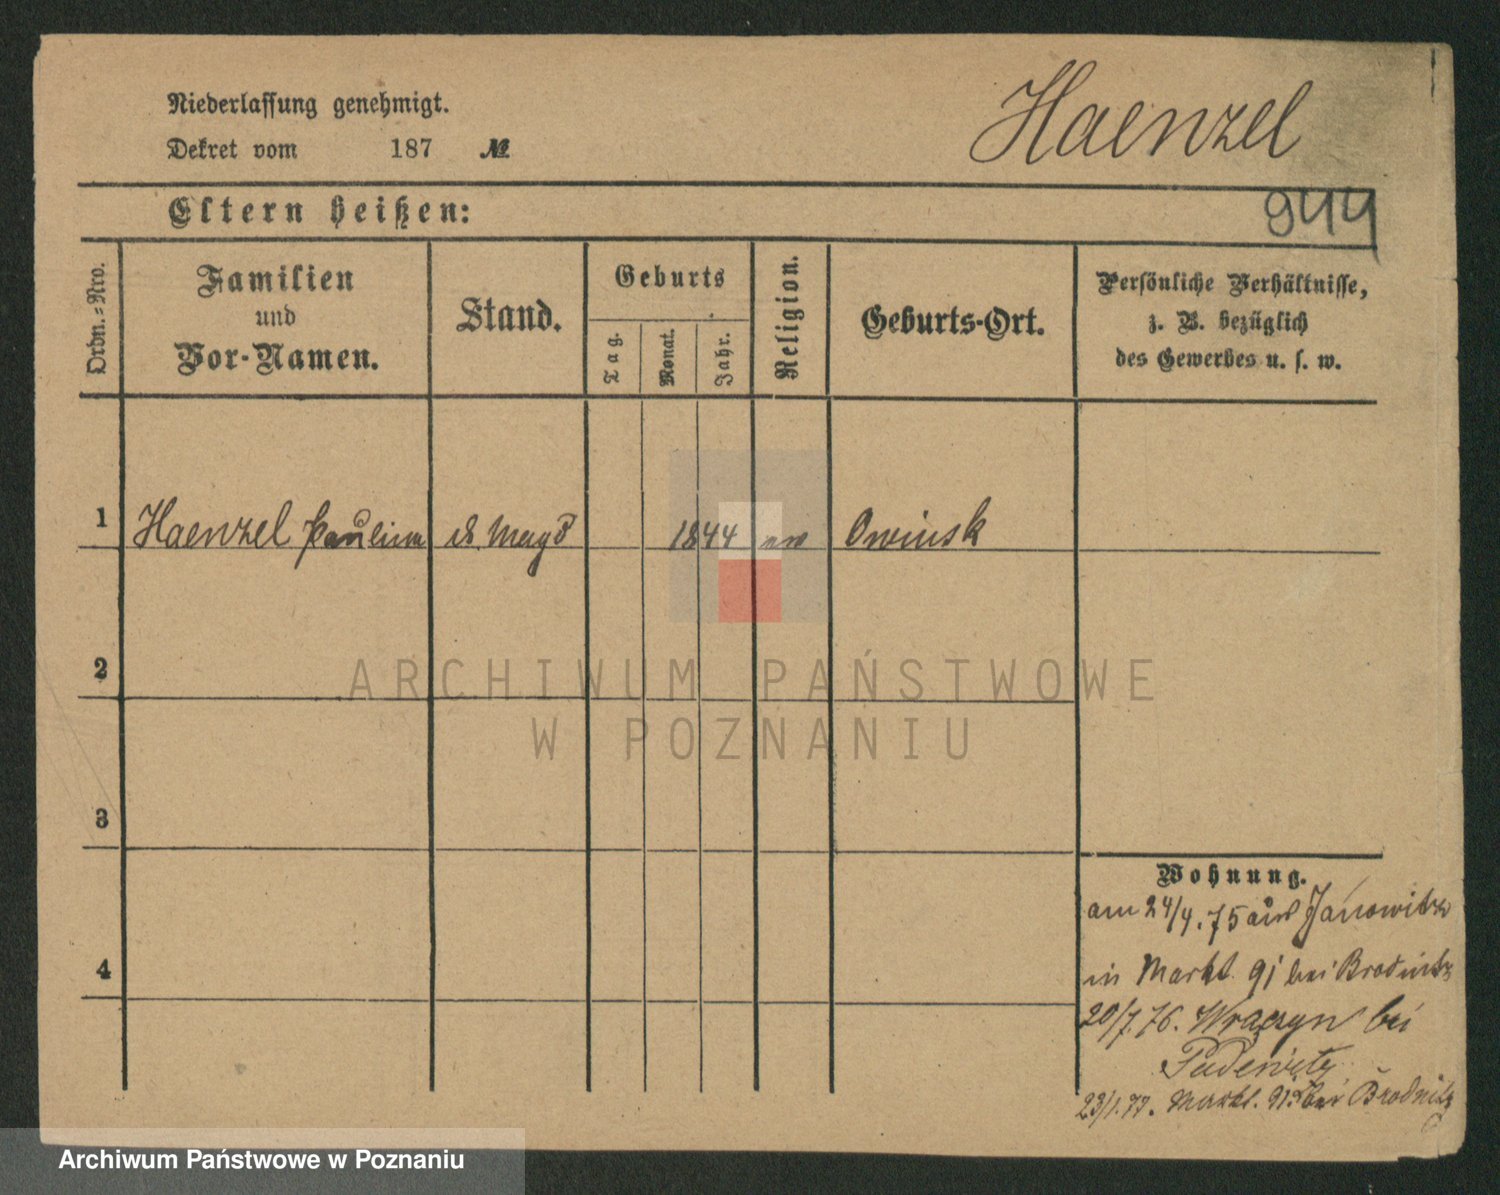 Haenzel
Niederlassung genehmigt.
Dekret vom 187 №
944
Eltern heißen:
Ordn.-Nro.
Familien
und
Vor-Namen.
Stand.
Geburts
Tag.
Monat.
Jahr.
Religion.
Geburts-Ort.
Persönliche Verhältnisse,
z. B. bezüglich
des Gewerbes u. s. w.
1 Haenzel Paulina d. Magd 1844 ev Owinsk
2
ARCHIWUM PAŃSTWOWE
W POZNANIU
3
4
Wohnung.
am 24/4. 75 aus Janowitz
in Markt 91 bei Brodnitz
20/7. 76. Wraczyn bei
Pudewitz
23/1. 77. Markt. 91 bei Brodnitz
Archiwum Państwowe w Poznaniu